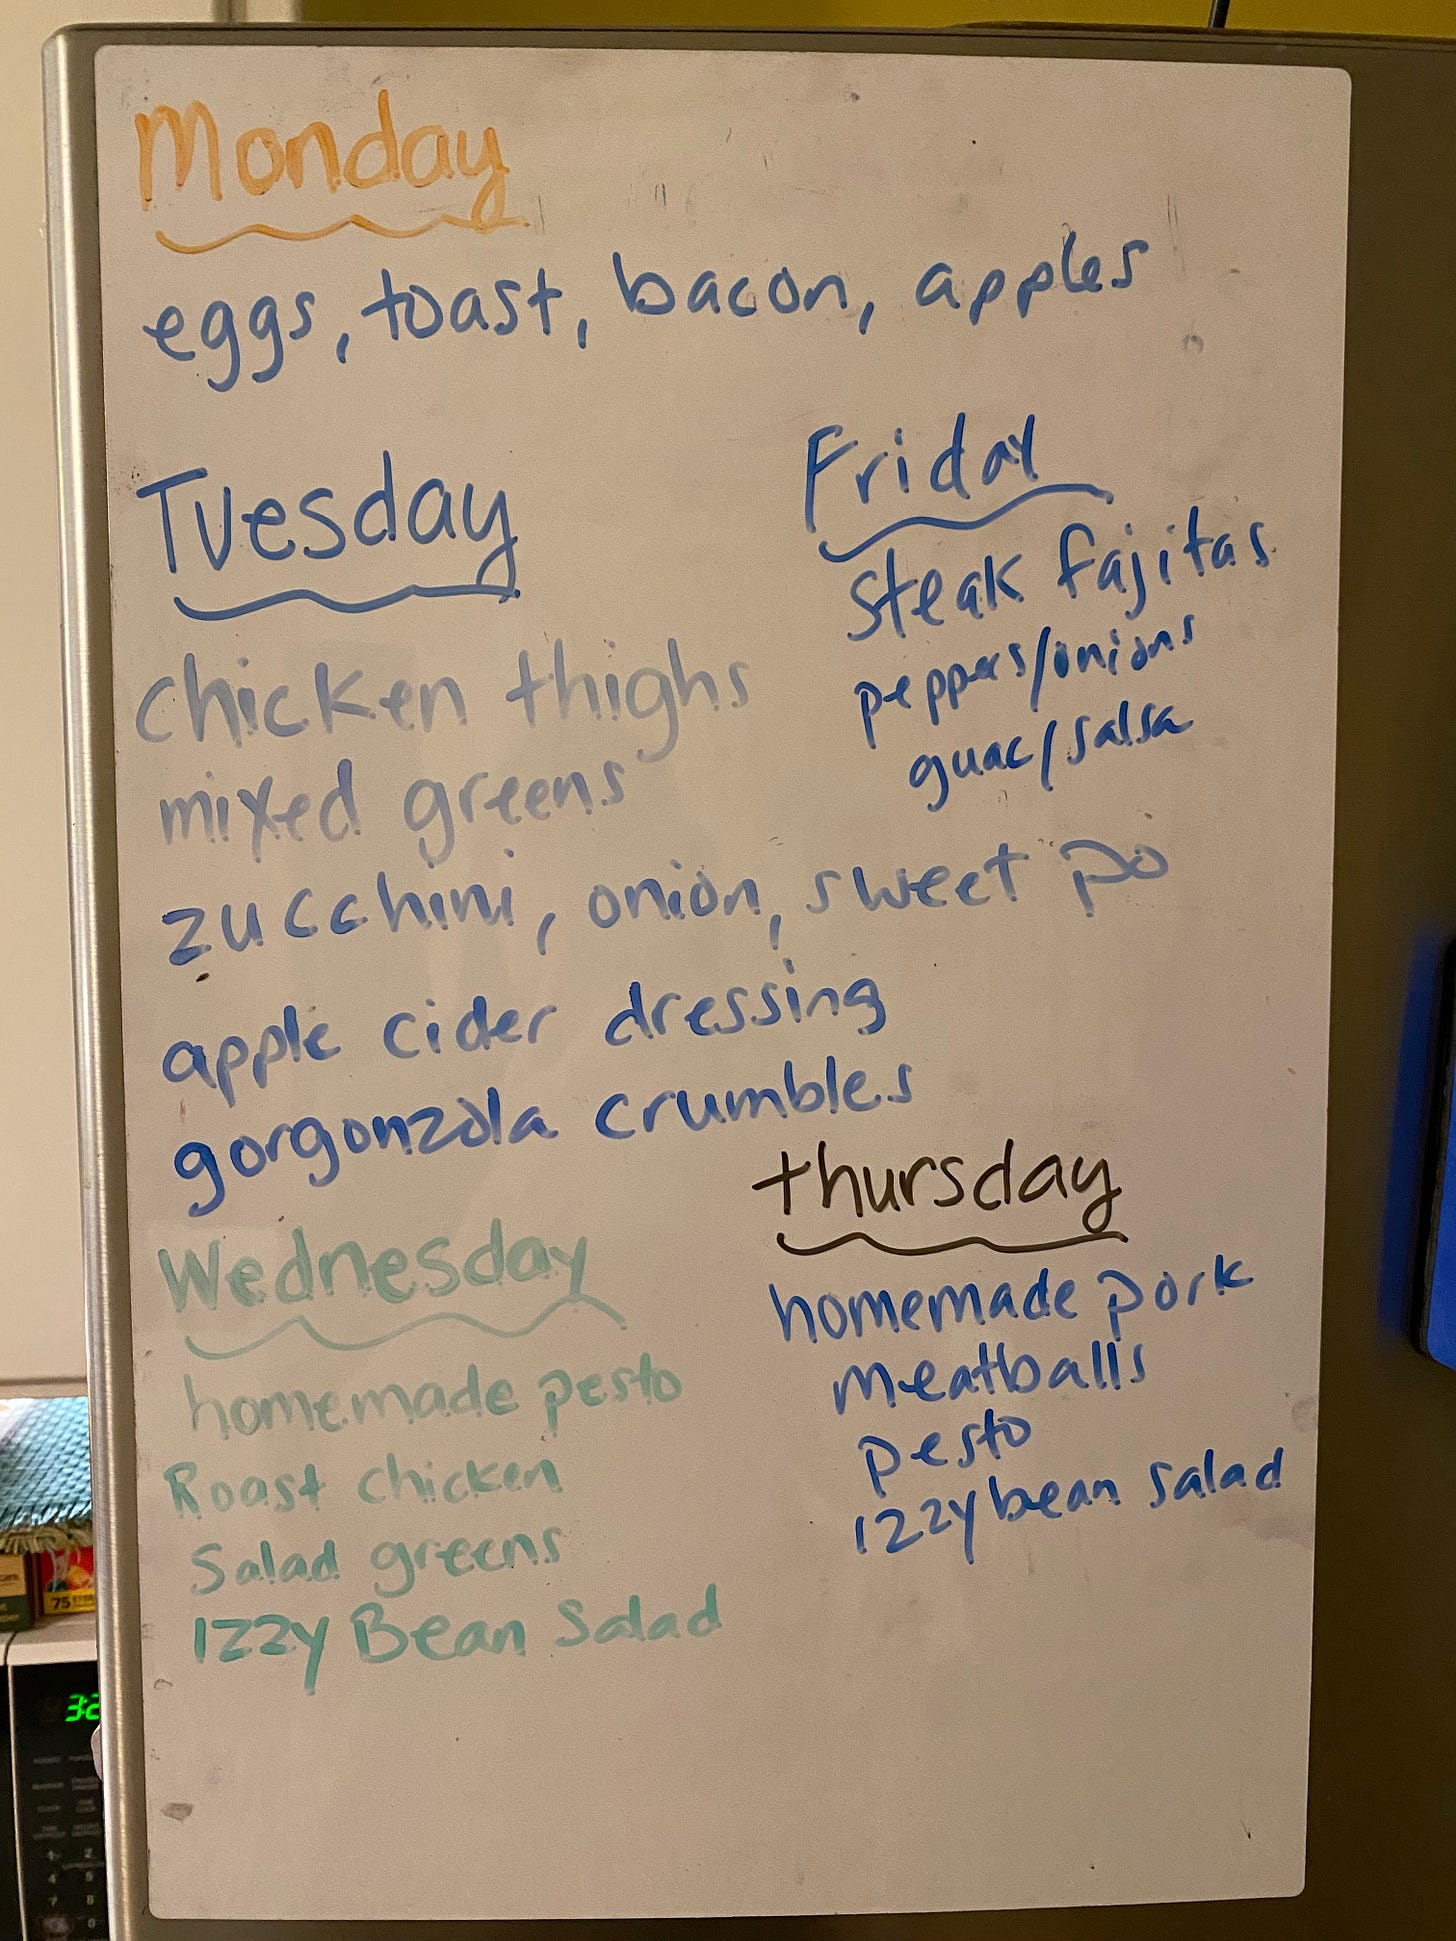 Monday
eggs, toast, bacon, apples
Tuesday
chicken thighs
mixed greens
zucchini, onion, sweet po
apple cider dressing
gorgonzola crumbles
Friday
steak fajitas
peppers/onions
guac/salsa
Wednesday
homemade pesto
Roast chicken
Salad greens
Izzy Bean Salad
thursday
homemade pork
meatballs
pesto
izzy bean salad
75